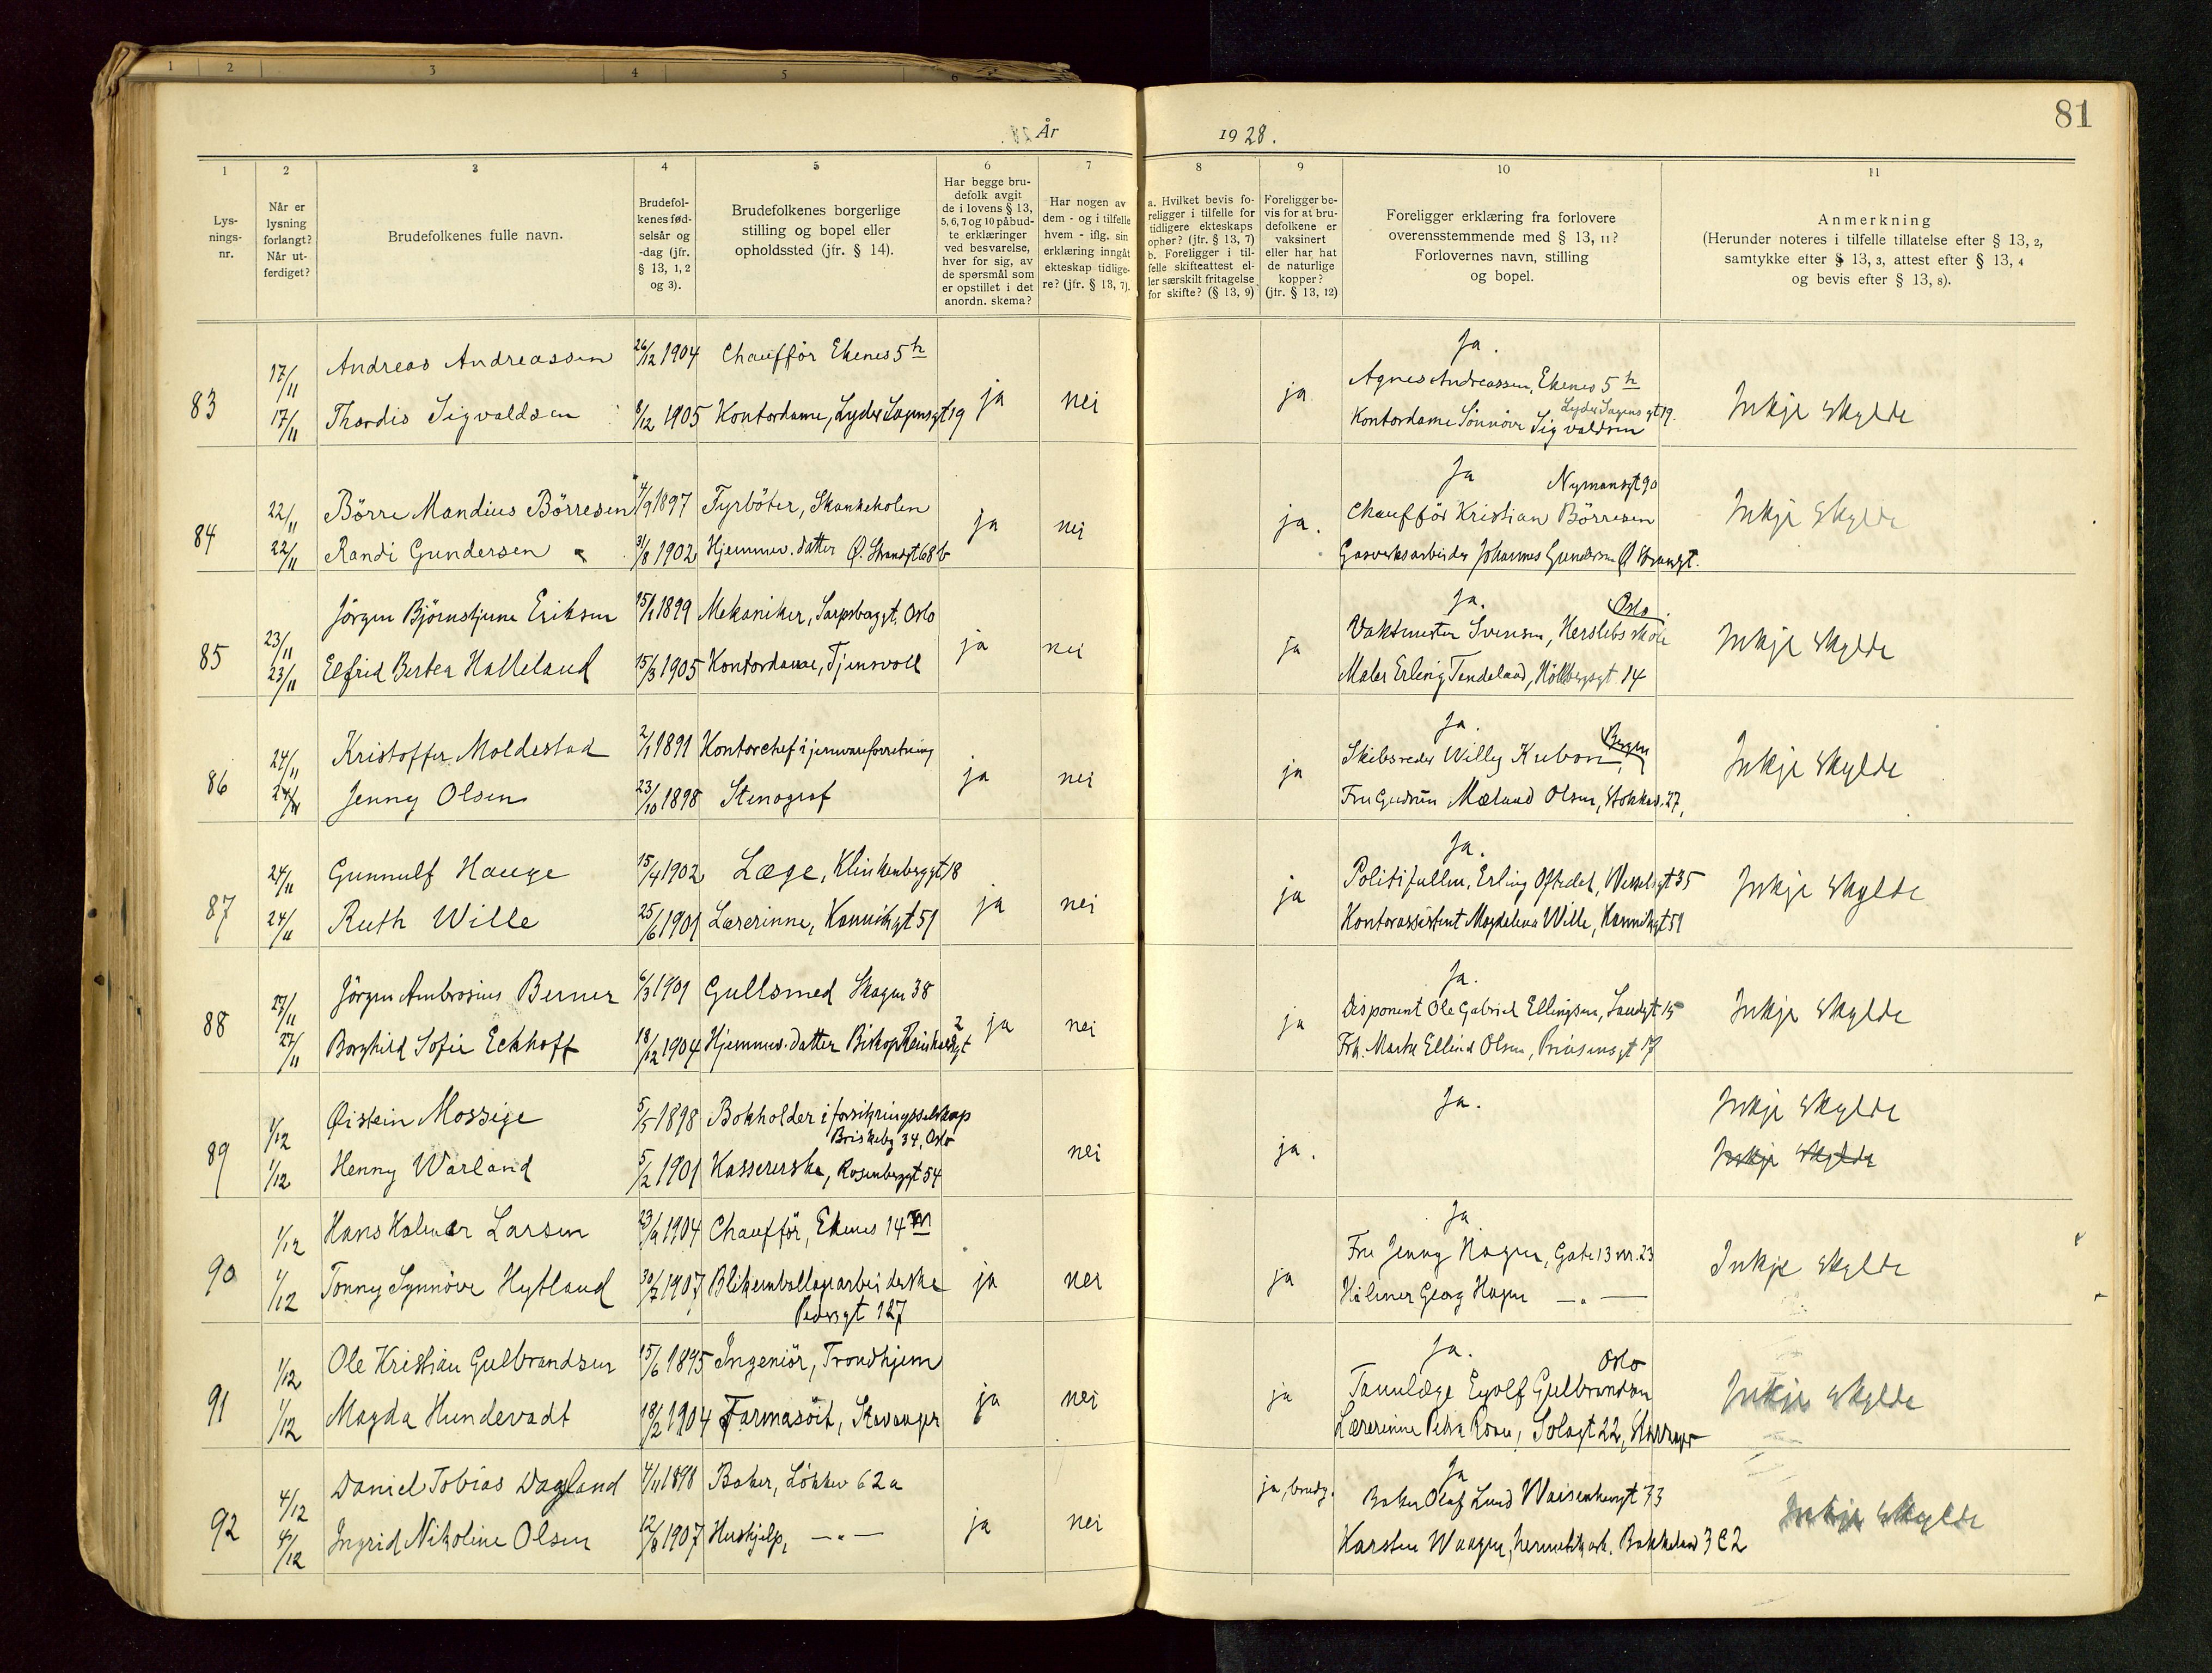 1 2 3 4 5 6
81
År 1928.
1 2 3 4 5 6 7 8 9 10 11
Lys-
nings-
nr.
Når er
lysning
forlangt?
Når ut-
ferdiget?
Brudefolkenes fulle navn.
Brudefol-
kenes fød-
selsår og
-dag (jfr.
§ 13, 1, 2
og 3).
Brudefolkenes borgerlige
stilling og bopel eller
opholdssted (jfr. § 14).
Har begge bru-
defolk avgit
de i lovens § 13,
5, 6, 7 og 10 påbud-
te erklæringer
ved besvarelse,
hver for sig, av
de spørsmål som
er opstillet i det
anordn. skema?
Har nogen av
dem - og i tilfelle
hvem - iflg. sin
erklæring inngåt
ekteskap tidlige-
re? (jfr. § 13, 7).
a. Hvilket bevis fo-
religger i tilfelle for
tidligere ekteskaps
ophør? (jfr. § 13, 7)
b. Foreligger i til-
felle skifteattest el-
ler særskilt fritagelse
for skifte? (§ 13, 9)
Foreligger be-
vis for at bru-
defolkene er
vaksinert
eller har hat
de naturlige
kopper?
(jfr. § 13, 12)
Foreligger erklæring fra forlovere
overensstemmende med § 13, 11?
Forlovernes navn, stilling
og bopel.
Anmerkning
(Herunder noteres i tilfelle tillatelse efter § 13, 2,
samtykke efter § 13, 3, attest efter § 13, 4
og bevis efter § 13, 8).
83 17/11 Andreas Andreassen 26/12 1904 Chaufför Ekenes 5 h Ja.
17/11 Thordis Sigvaldsen 8/12 1905 Kontordame, Lyder Sagensgt 19 ja nei ja
Agnes Andreassen, Ekenes 5 h
Lyder Sagens gt 19.
Kontordame Sönnöve Sigvaldsen
Inkje skylde
84 22/11 Börre Mandius Börresen 4/9 1897 Fyrböter, Skankeholen
22/11 Randi Gundersen 31/8 1902 Hjemmev. datter Ø. Strandgt 68 b ja nei ja.
Ja Nymansgt 90
Chaufför Kristian Börresen
Gasverksarbeider Johannes Gundersen Ø Strandgt.
Inkje skylde
85 23/11 Jörgen Björnstjerne Eriksen 15/1 1899 Mekaniker, Sarpsborggt. Oslo
23/11 Elfrid Bertea Halleland 15/3 1905 Kontordame, Tjensvoll ja nei ja
Ja. Oslo
Vaktmester Svensen, Herslebs skole
Maler Erling Tendeland, 14
Inkje skylde
86 24/11 Kristoffer Moldestad 2/1 1891 Kontorchef i jernvareforretning
24/11 Jenny Olsen 23/10 1898 Stenograf ja nei ja
Ja.
Skibsreder Willy Kubon, Bergen
Fru Gudrun Mæland Olsen, Stokkav. 27,
Inkje skylde
87 24/11 Gunnulf Hauge 15/4 1902 Læge, Klinkenberggt 18
24/11 Ruth Wille 25/6 1901 Lærerinne, Kannikgt 51 ja nei ja
Ja.
Politifullm. Erling Oftedal, Wesselsgt 35
Kontorassistent Magdalena Wille, Kannikgt 51
Inkje skylde
88 27/11 Jörgen Ambrosius Berner 6/3 1901 Gullsmed Skagen 38
27/11 Borghild Sofie Eckhoff 18/12 1904 Hjemmev. datter Biskop Reinhardsgt 2 ja nei ja
Ja.
Disponent Ole Gabriel Ellingsen, Sandgt 15
Frk. Marta Olsen, Prinsensgt 17
Inkje skylde
89 1/12 Øistein Mossige 5/5 1898 Bokholder i forsikringsselskap
Briskeby 34, Oslo
1/12 Henny Warland 5/2 1901 Kassererske, Rosenberggt 54 nei ja.
Ja.
Inkje skylde
Inkje skylde
90 1/12 Hans Halmar Larsen 23/9 1904 Chaufför, Ekenes 14
1/12 Tonny Synnöve Hytland 30/7 1907 Blikemballagearbeiderske
Pedersgt 127 ja nei ja
Ja
Fru Jenny Hagen, Gate 13 nr. 23
Hilmer Georg Hagen — „ —
Inkje skylde
91 1/12 Ole Kristian Gulbrandsen 15/6 1895 Ingeniör, Trondhjem
1/12 Magda Hundevadt 18/2 1904 Farmasöit, Stavanger ja nei ja
Ja. Oslo
Tannlæge Eyolf Gulbrandsen
Lærerinne Petra Roan, Solagt 22, Stavanger
Inkje skylde
92 4/12 Daniel Tobias Dagsland 4/11 1898 Baker, Lökkev 62 a
4/12 Ingrid Nikoline Olsen 12/8 1907 Hushjelp, — „ — ja nei ja, brudg.
Ja
Baker Olaf Lund Waisenhusgt 33
Karsten Waagen, hermetikarb. Bakkeland 3 C 2
Inkje skylde